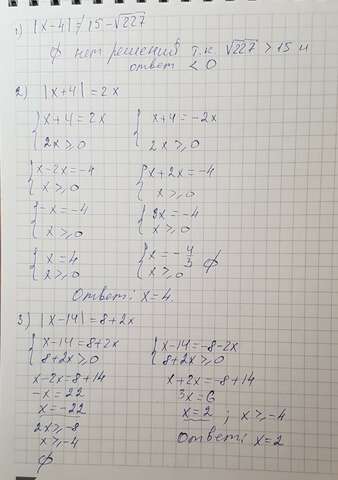 1) |x-4| = 15-√227
∅ нет решений т.к √227 > 15 и
ответ < 0
2) |x+4| = 2x
{x+4=2x
2x⩾0
{x+4=-2x
2x⩾0
{x-2x=-4
x⩾0
{x+2x=-4
x⩾0
{-x=-4
x⩾0
{3x=-4
x⩾0
{x=4
x⩾0
{x=-4/3
x⩾0 ∅
Ответ: x=4.
3) |x-14|=8+2x
{x-14=8+2x
8+2x⩾0
{x-14=-8-2x
8+2x⩾0
x-2x=8+14
-x=22
x=-22
2x⩾-8
x⩾-4
∅
x+2x=-8+14
3x=6
x=2 ; x⩾-4
Ответ: x=2